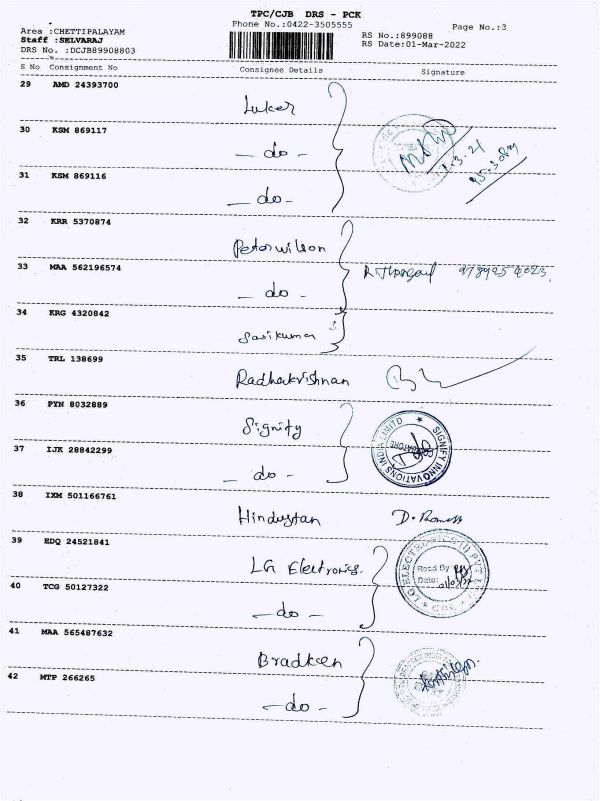 TPC/CJB DRS - PCK
Phone No.:0422-3505555
Page No.:3
Area :CHETTIPALAYAM
Staff :SELVARAJ
DRS No. :DCJB89908803
RS No.:899088
RS Date:01-Mar-2022
S No Consignment No Consignee Details Signature
29 AMD 24393700
Luker
30 KSM 869117
- do -
31 KSM 869116
- do -
32 KRR 5370874
Peter wilson
33 MAA 562196574
- do -
34 KRG 4320842
Sasikumar
35 TRL 138699
Radhakrishnan
36 PYN 8032889
Signify
SIGNIFY INNOVATIONS INDIA LIMITED
37 IJK 28842299
- do -
38 IXM 501166761
Hindustan
39 EDQ 24521841
LG Electronics
LG ELECTRONICS (I) PVT LTD
Recd By
Date:
40 TCG 50127322
- do -
41 MAA 565487632
Bradken
42 MTP 266265
- do -